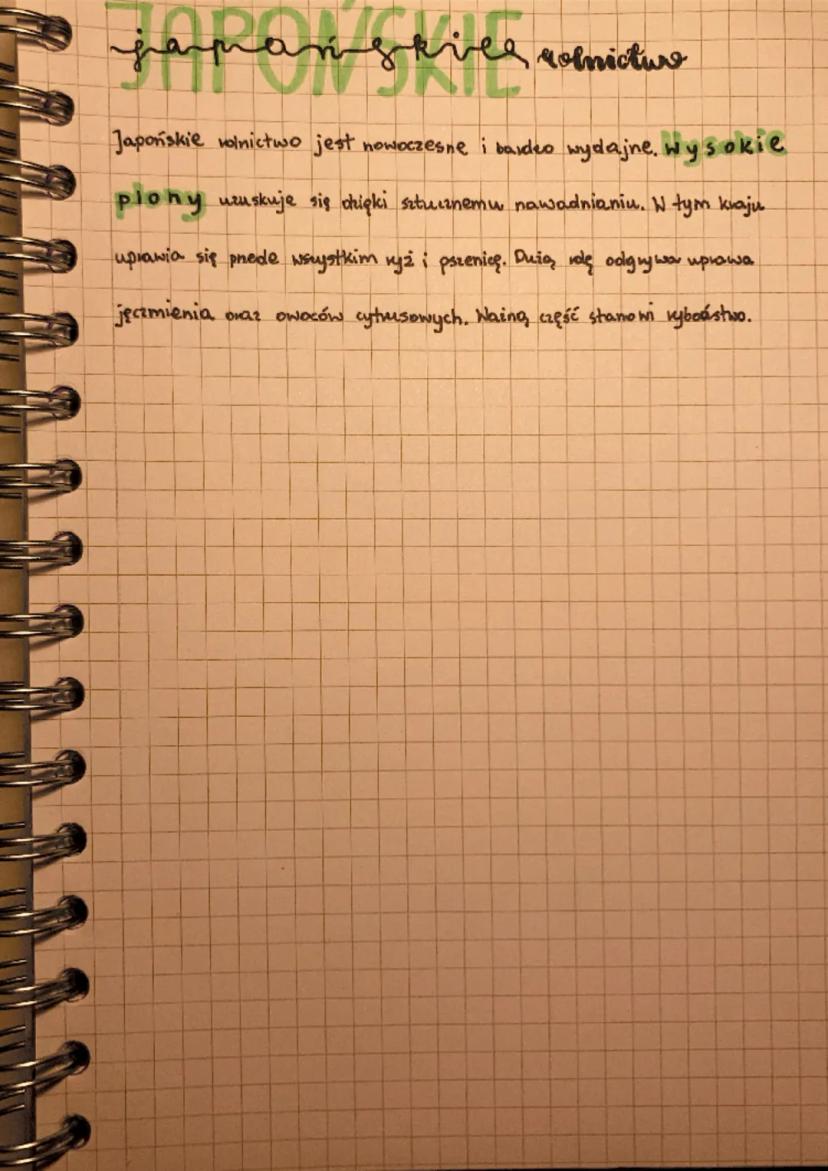 JAPOŃSKIE
japońskie rolnictwo
Japońskie rolnictwo jest nowoczesne i bardzo wydajne. Wysokie
plony uzyskuje się dzięki sztucznemu nawadnianiu. W tym kraju
uprawia się przede wszystkim ryż i pszenicę. Dużą rolę odgrywa uprawa
jęczmienia oraz owoców cytrusowych. Ważną część stanowi rybołóstwo.